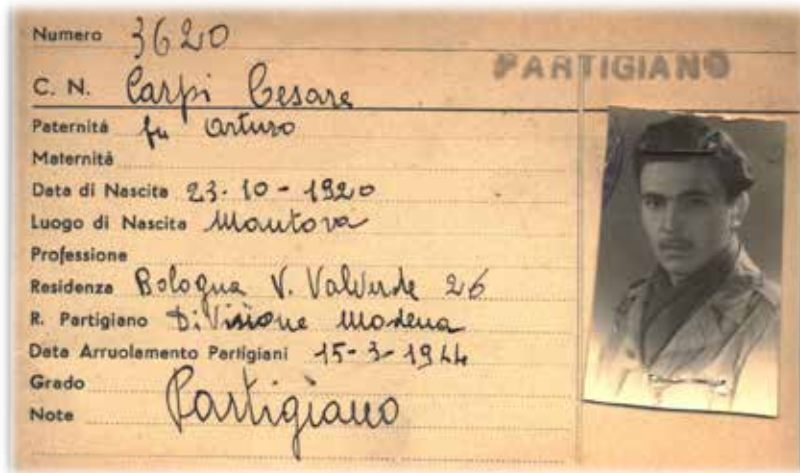 Numero 3620
PARTIGIANO
C. N. Carpi Cesare
Paternità fu Arturo
Maternità
Data di Nascita 23-10-1920
Luogo di Nascita Mantova
Professione
Residenza Bologna V. Valverde 26
R. Partigiano Divisione Modena
Data Arruolamento Partigiani 15-3-1944
Grado Partigiano
Note